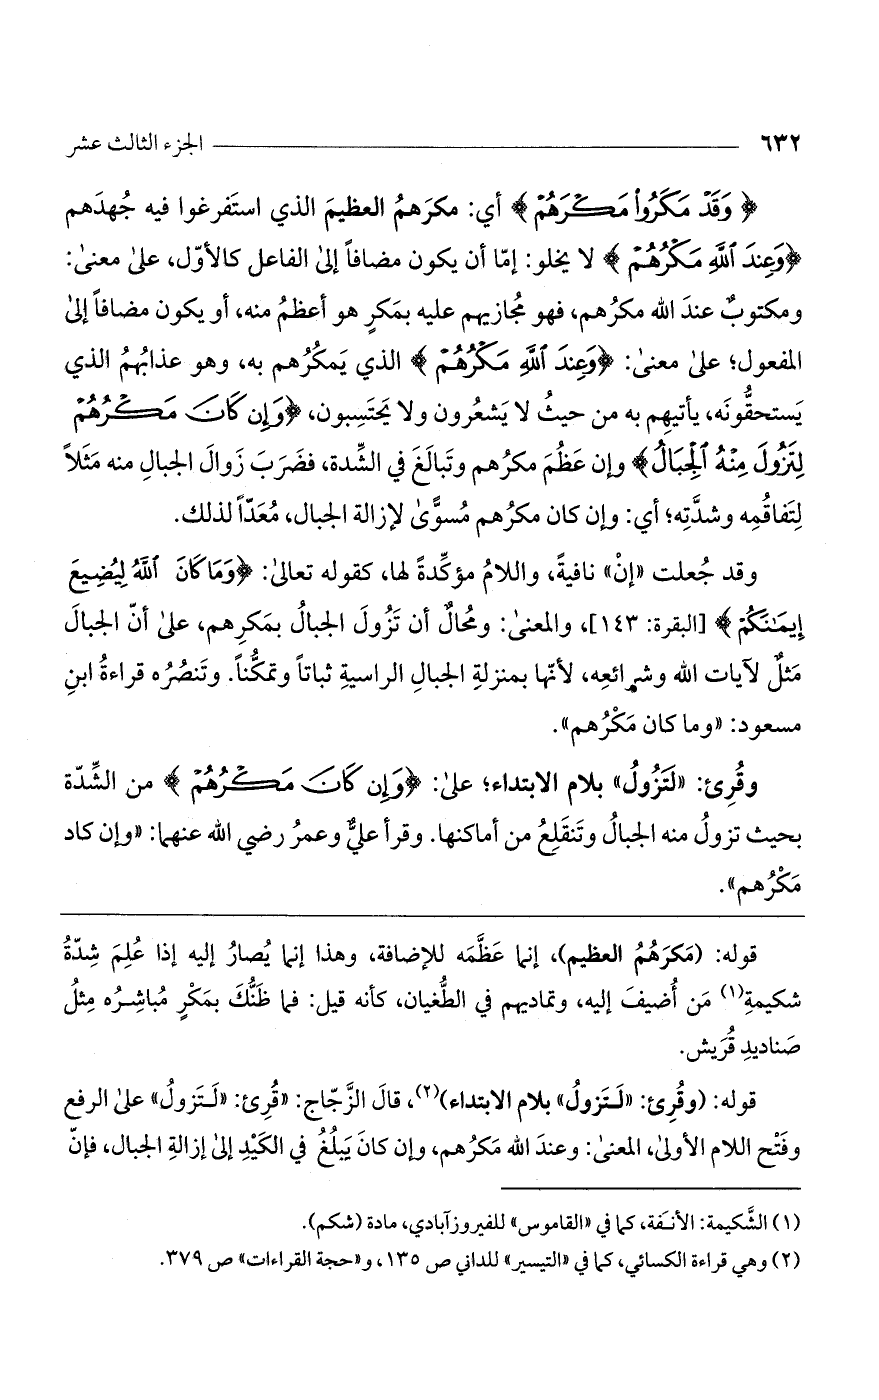 ٦٣٢ الجزء الثالث عشر
﴿ وَقَدْ مَكَرُوا۟ مَكْرَهُمْ ﴾ أي: مكرَهمُ العظيمَ الذي استَفرغوا فيه جُهدَهم
﴿وَعِندَ ٱللَّهِ مَكْرُهُمْ ﴾ لا يخلو: إمّا أن يكون مضافاً إلىٰ الفاعل كالأوّل، علىٰ معنىٰ:
ومكتوبٌ عندَ الله مكرُهم، فهو مُجازيهم عليه بمَكرٍ هو أعظمُ منه، أو يكون مضافاً إلىٰ
المفعول؛ علىٰ معنىٰ: ﴿وَعِندَ ٱللَّهِ مَكْرُهُمْ ﴾ الذي يَمكُرُهم به، وهو عذابُهُمُ الذي
يَستحقُّونَه، يأتيهِم به من حيثُ لا يَشعُرون ولا يَحتَسِبون، ﴿وَإِن كَانَ مَكْرُهُمْ
لِتَزُولَ مِنْهُ ٱلْجِبَالُ﴾ وإن عَظُمَ مكرُهم وتَبالَغَ في الشِّدة، فضَرَبَ زَوالَ الجبالِ منه مَثَلاً
لِتَفاقُمِه وشدَّتِه؛ أي: وإن كان مكرُهم مُسوًّىٰ لإزالة الجبال، مُعَدّاً لذلك.
وقد جُعلت «إنْ» نافيةً، واللامُ مؤكِّدةً لها، كقوله تعالىٰ: ﴿وَمَا كَانَ ٱللَّهُ لِيُضِيعَ
إِيمَـٰنَكُمْ ﴾ [البقرة: ١٤٣]، والمعنىٰ: ومُحالٌ أن تَزُولَ الجبالُ بمَكرِهم، علىٰ أنّ الجبالَ
مَثلٌ لآيات الله وشرائعِه، لأنّها بمنزلةِ الجبالِ الراسيةِ ثباتاً وتمكُّناً. وتَنصُرُه قراءةُ ابنِ
مسعود: «وما كان مَكْرُهم».
وقُرِئ: «لَتَزُولُ» بلام الابتداء؛ علىٰ: ﴿وَإِن كَانَ مَكْرُهُمْ ﴾ من الشِّدّة
بحيث تزولُ منه الجبالُ وتَنقَلِعُ من أماكنها. وقرأ عليٌّ وعمرُ رضي الله عنهما: «وإن كاد
مَكْرُهم».
قوله: (مَكرَهُمُ العظيم)، إنما عَظَّمَه للإضافة، وهذا إنما يُصارُ إليه إذا عُلِمَ شِدّةُ
شكيمةِ(١) مَن أُضيفَ إليه، وتماديهم في الطُّغيان، كأنه قيل: فما ظَنُّكَ بمَكْرٍ مُباشِرُه مِثلُ
صَناديدِ قُرَيش.
قوله: (وقُرِئ: «لَـتَزولُ» بلام الابتداء)(٢)، قالَ الزَّجّاج: «قُرِئ: «لَـتَزولُ» علىٰ الرفع
وفَتْح اللام الأولىٰ، المعنىٰ: وعندَ الله مَكرُهم، وإن كانَ يَبلُغُ في الكَيْدِ إلىٰ إزالةِ الجبال، فإنّ
(١) الشَّكيمة: الأنـَفة، كما في «القاموس» للفيروزآبادي، مادة (شكم).
(٢) وهي قراءة الكسائي، كما في «التيسير» للداني ص ١٣٥، و«حجة القراءات» ص ٣٧٩.